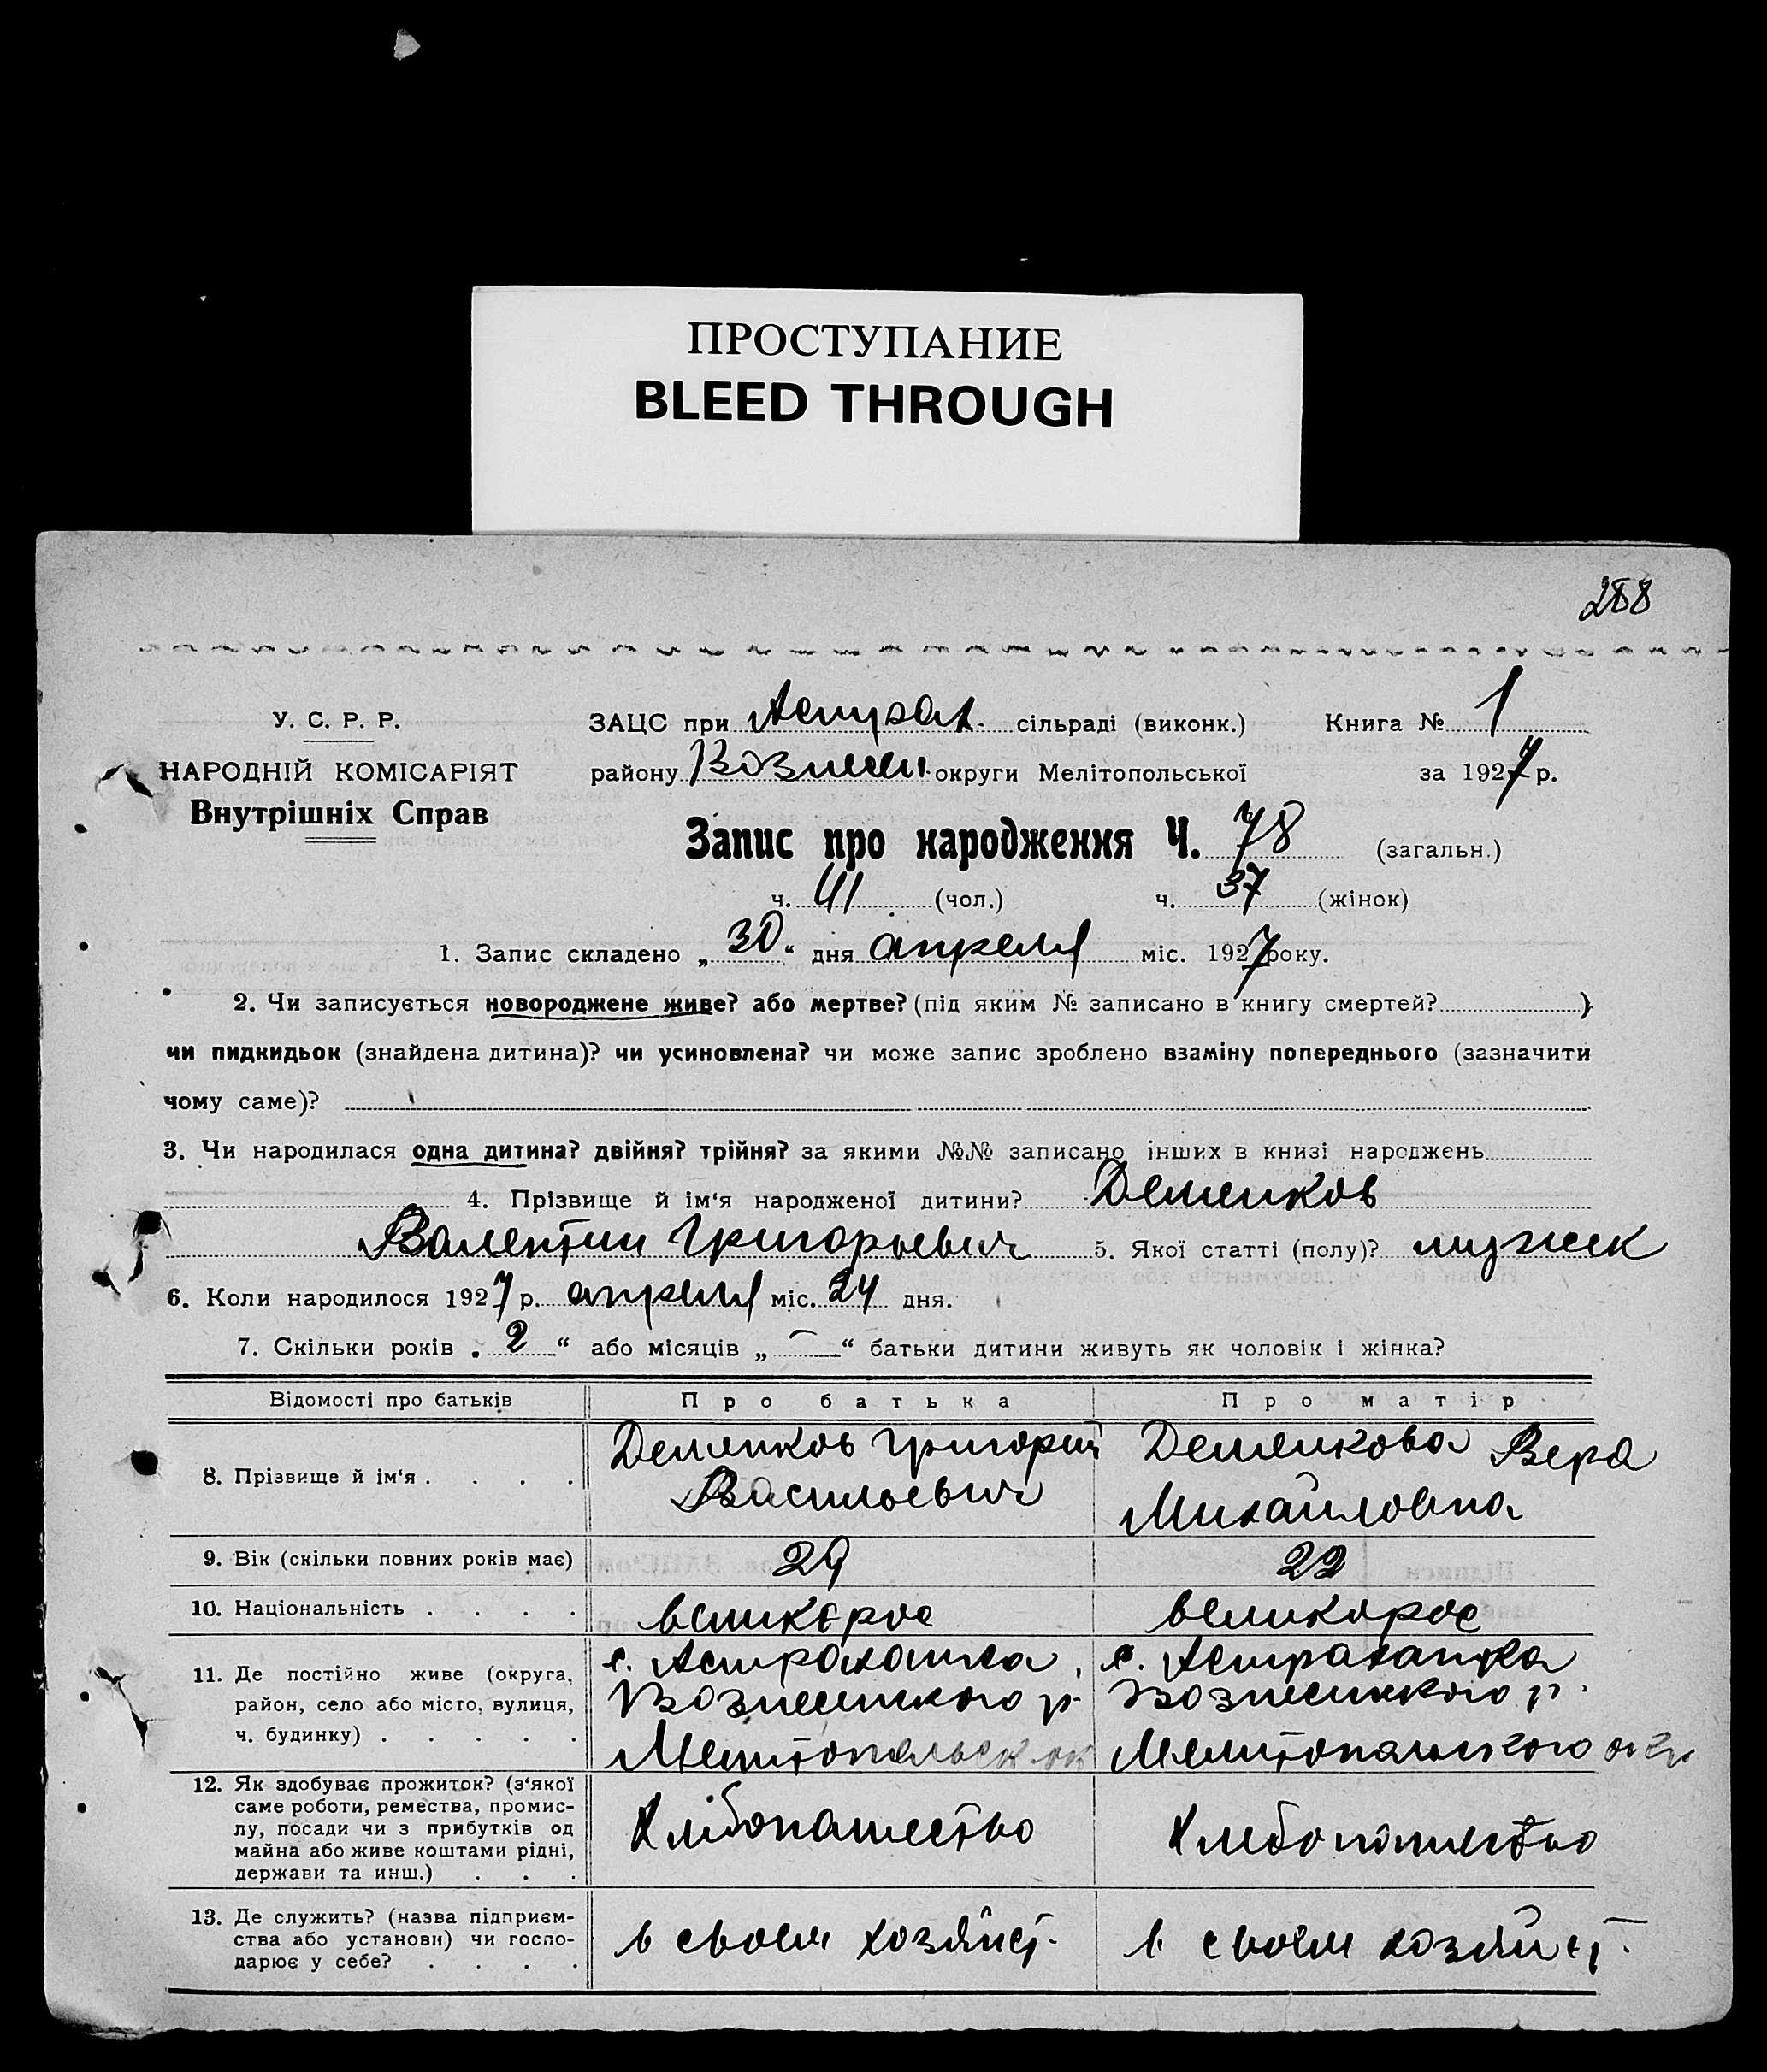 ПРОСТУПАНИЕ
BLEED THROUGH
288
У. С. Р. Р.
ЗАЦС при Астрах. сільраді (виконк.) Книга № 1
НАРОДНІЙ КОМІСАРІЯТ
району Вознесен. округи Мелітопольської за 1927 р.
Внутрішніх Справ
Запис про народження Ч. 78 (загальн.)
ч. 41 (чол.) ч. 37 (жінок)
1. Запис складено „30“ дня апреля міс. 1927 року.
2. Чи записується новороджене живе? або мертве? (під яким № записано в книгу смертей? )
чи пидкидьок (знайдена дитина)? чи усиновлена? чи може запис зроблено взаміну попереднього (зазначити
чому саме)?
3. Чи народилася одна дитина? двійня? трійня? за якими №№ записано інших в книзі народжень
4. Прізвище й ім‘я народженої дитини? Деменков
Валентин Григорьевич 5. Якої статті (полу)? мужск
6. Коли народилося 1927 р. апреля міс. 24 дня.
7. Скільки років „2“ або місяців „—“ батьки дитини живуть як чоловік і жінка?
Відомості про батьків Про батька Про матір
8. Прізвище й ім‘я . . . . Деменков Григорий Деменкова Вера
Васильевич Михайловна
9. Вік (скільки повних років має) 29 22
10. Національність . . . . великорос великорос
11. Де постійно живе (округа, с. Астраханка, с. Астраханка
район, село або місто, вулиця, Вознесенского р. Вознесенского р.
ч. будинку) . . . . . Мелитопольск ок Мелитопольского окр
12. Як здобуває прожиток? (з‘якої
саме роботи, ремества, промис-
лу, посади чи з прибутків од Хлібопашество Хлебопашество
майна або живе коштами рідні,
держави та инш.) . . .
13. Де служить? (назва підприєм-
ства або установи) чи госпо- в своем хозяйст. в своем хозяйст.
дарює у себе? . . . .